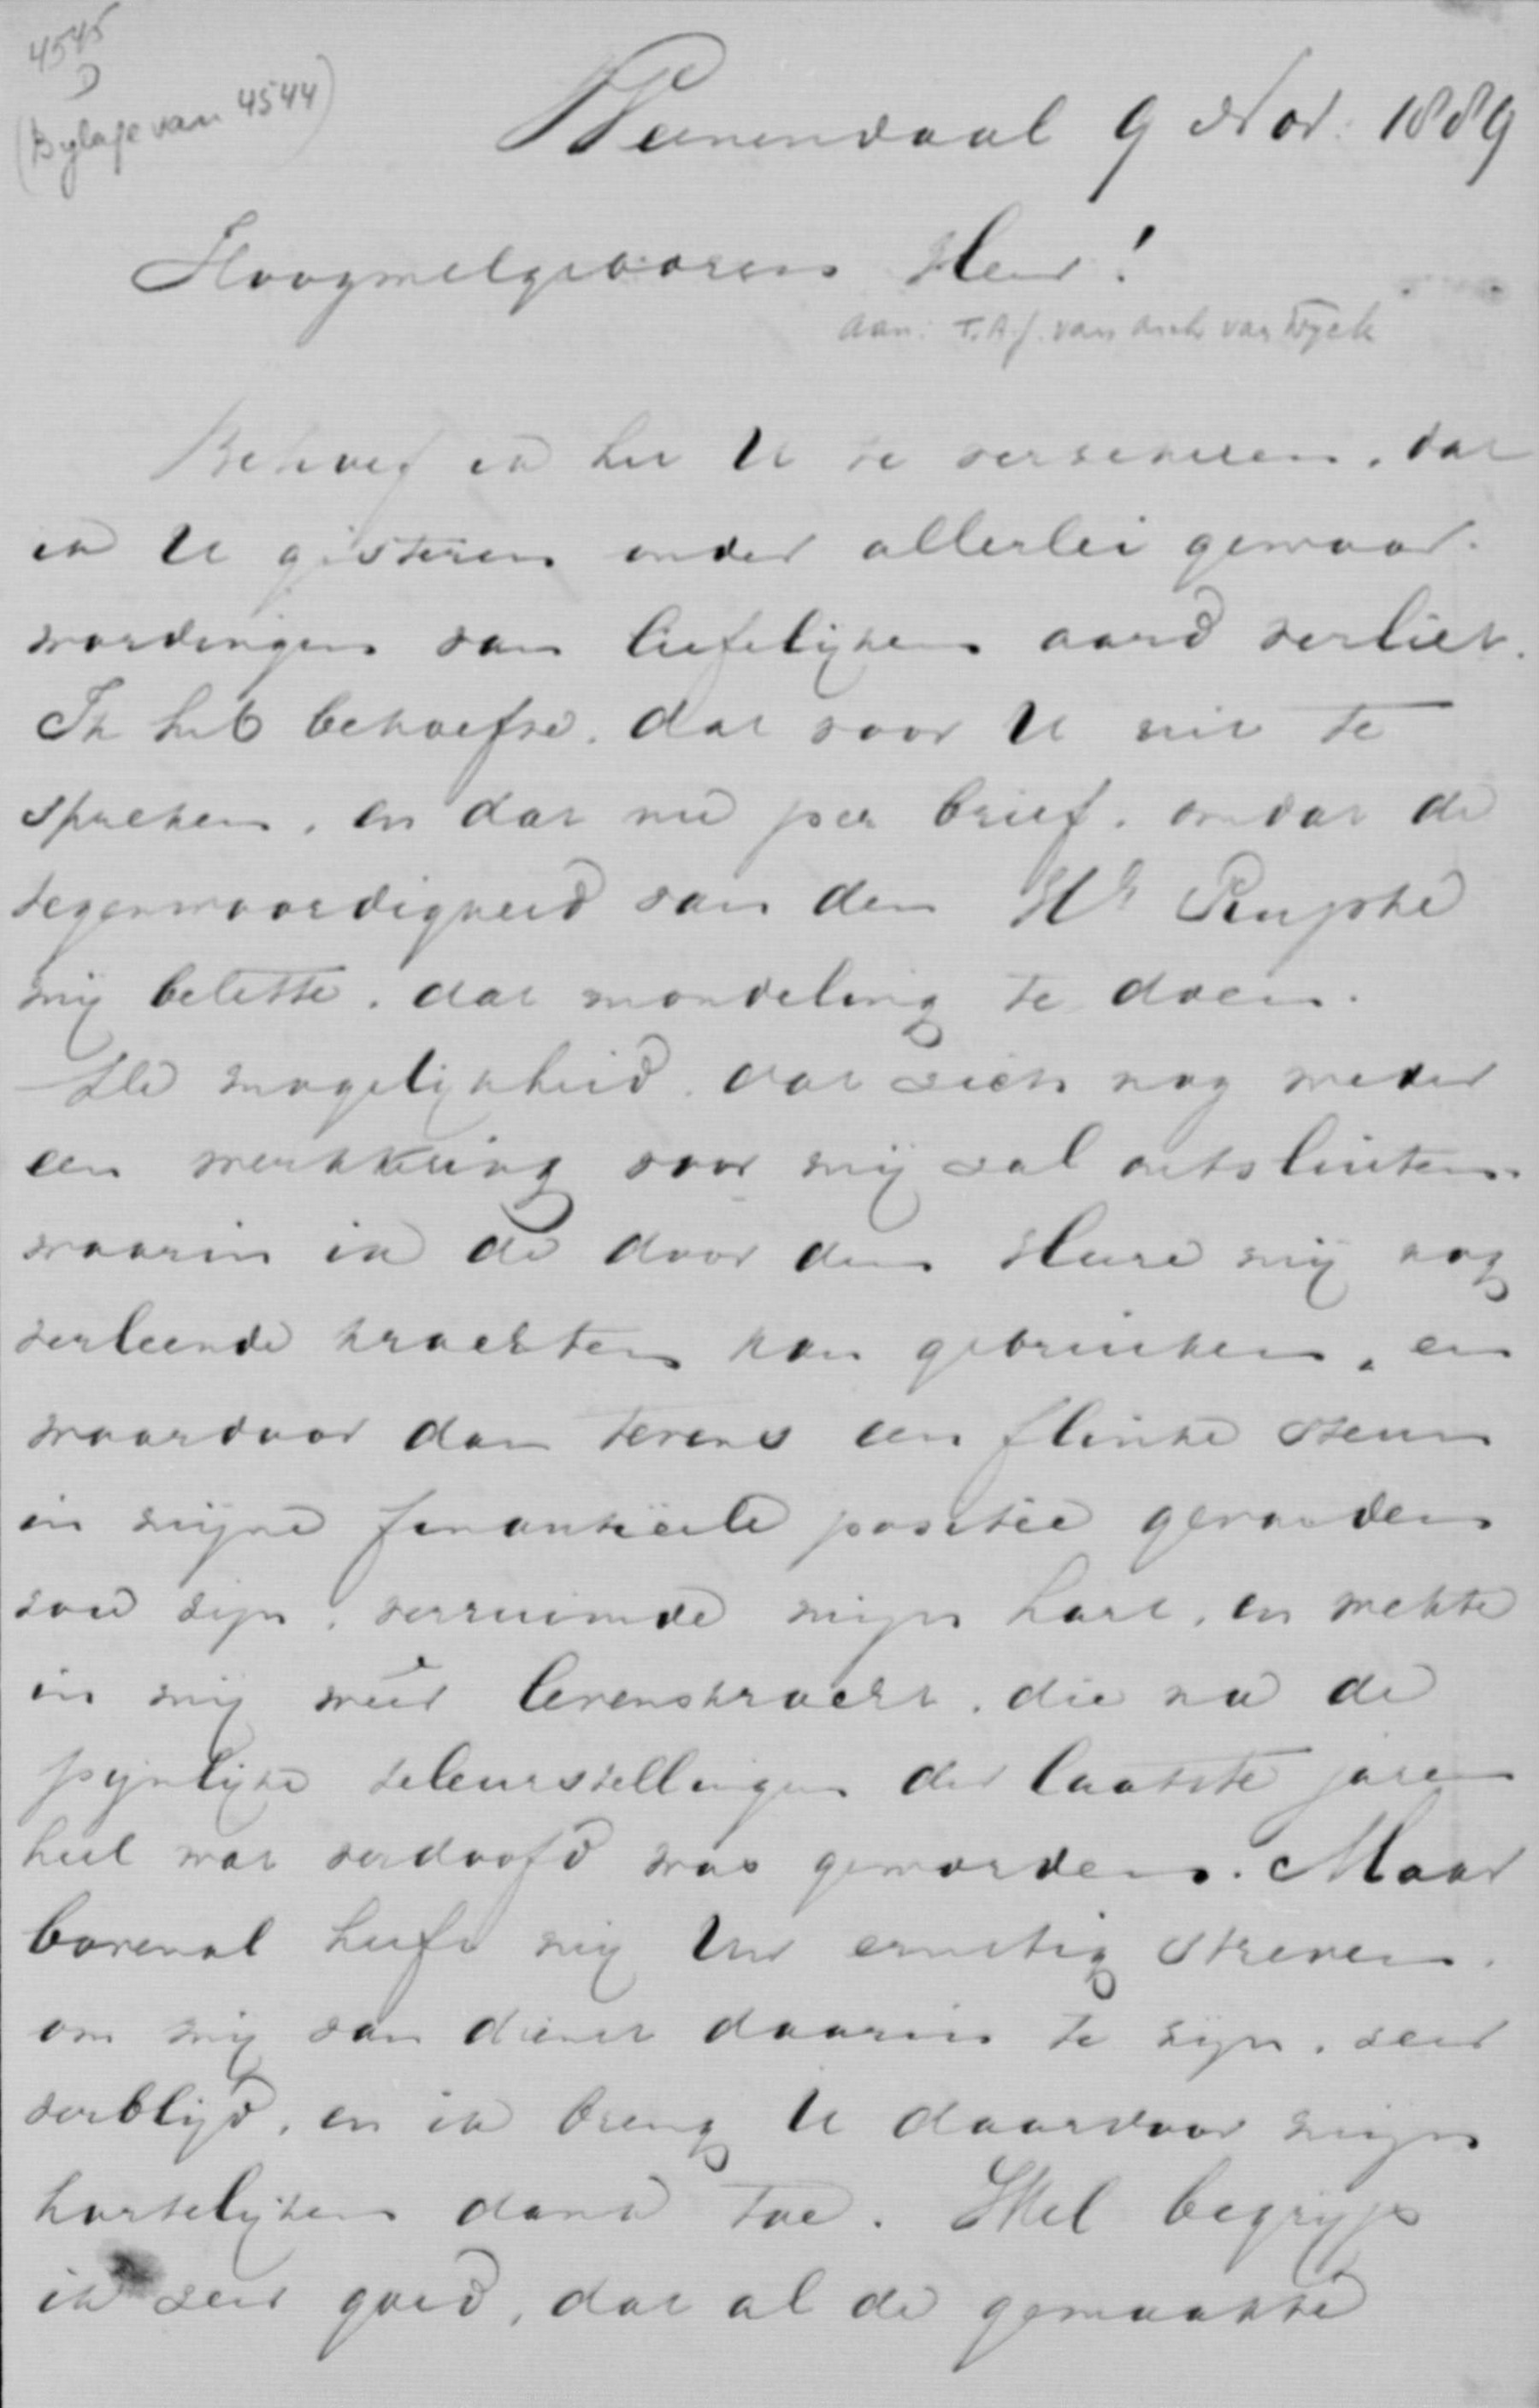 4545
D
(Bylage van 4544)
Veenendaal 9 Nov. 1889
Hoogwelgeboren Heer!
aan: T.A.J. van Asch van Wyck
Behoef ik het U te verzekeren, dat
ik U gisteren onder allerlei gewaar-
wordingen van liefelijken aard verliet.
Ik heb behoefte, dat voor U uit te
spreken, en dat nu per brief, omdat de
tegenwoordigheid van den Hr
mij belette, dat mondeling te doen.
De mogelijkheid, dat zich nog weder
een werkkring voor mij zal ontsluiten
waarin ik de door den Heere mij nog
verleende krachten kan gebruiken, en
waardoor dan tevens een flinke steun
in mijne finantiëele positie gevonden
zou zijn, verruimde mijn hart, en wekte
in mij weêr levenskracht, die na de
pijnlijke teleurstellingen der laatste jaren
heel wat verdoofd was geworden. Maar
bovenal heeft mij Uw ernstig streven,
om mij van dienst daarin te zijn, zeer
verblijd, en ik breng U daarvoor mijn
hartelijken dank toe. Wel begrijp
ik zeer goed, dat al de gemaakte